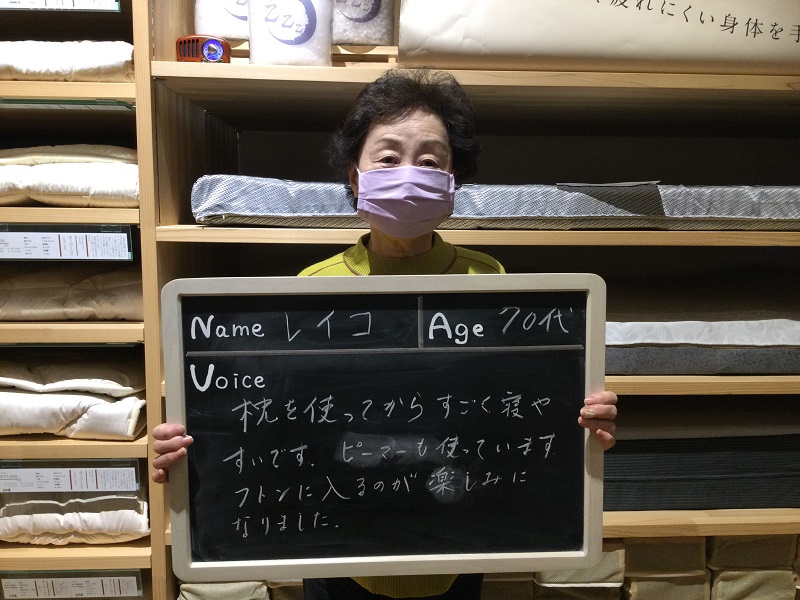 ZZZ
疲れにくい身体を手
Name レイコ
Age 70代
Voice
枕を使ってからすごく寝や
すいです. ピーマーも使っています
フトンに入るのが楽しみに
なりました.